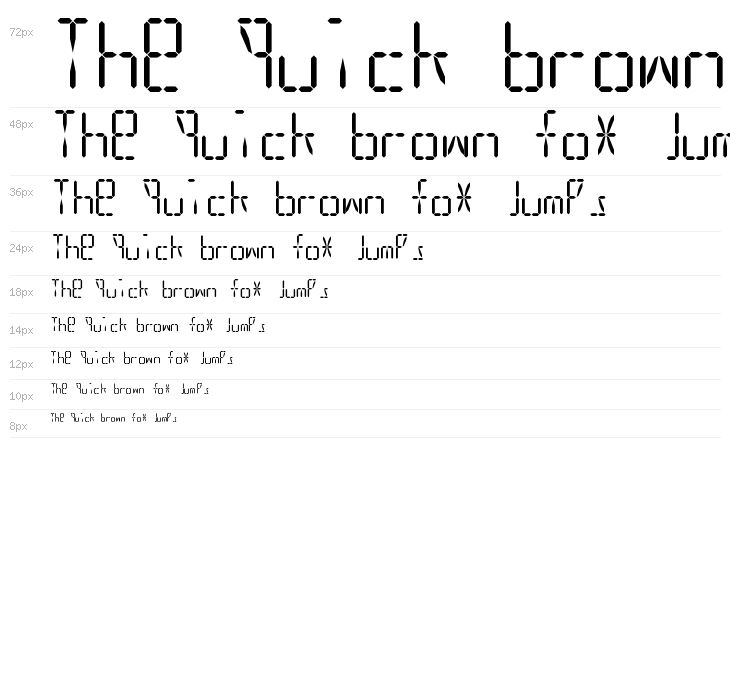 72px The quick brown
48px The quick brown fox jum
36px The quick brown fox jumps
24px The quick brown fox jumps
18px The quick brown fox jumps
14px The quick brown fox jumps
12px The quick brown fox jumps
10px The quick brown fox jumps
8px The quick brown fox jumps